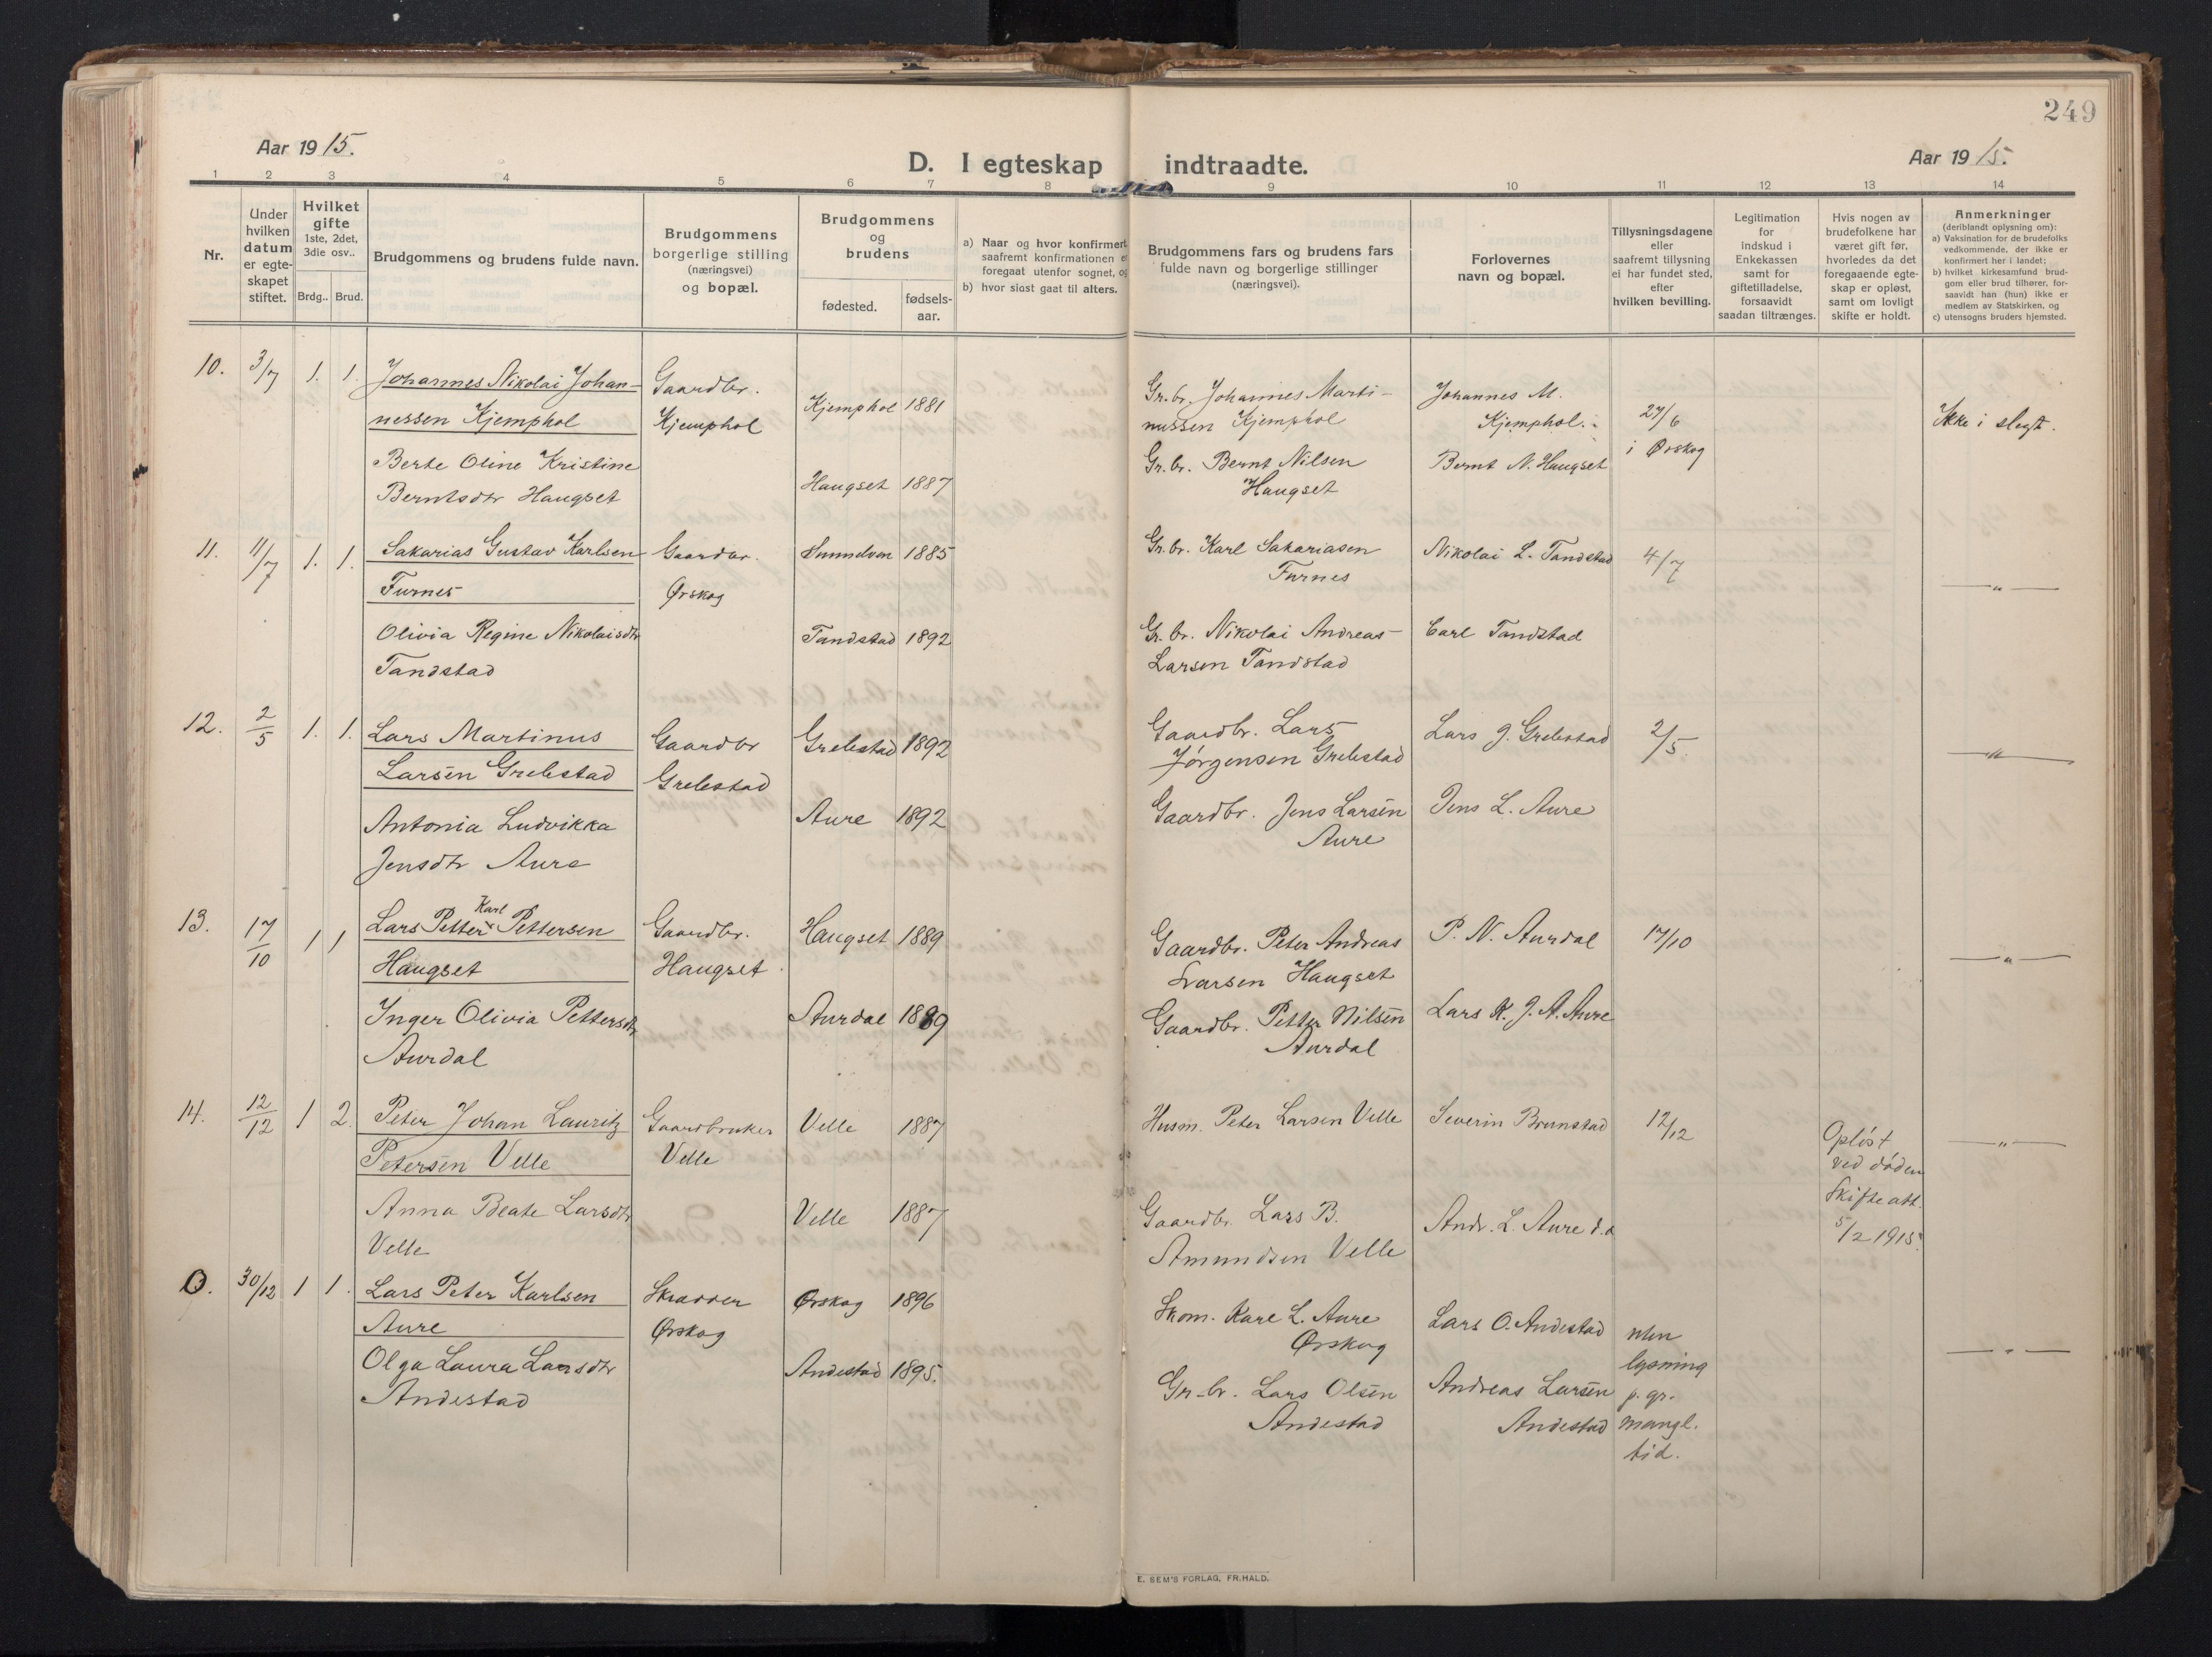 249
Aar 1915.
D. I egteskap indtraadte.
Aar 1915.
1 2 3 4 5 6 7 8 9 10 11 12 13 14
Nr.
Under
hvilken
datum
er egte-
skapet
stiftet.
Hvilket
gifte
1ste, 2det,
3die osv..
Brdg.. Brud.
Brudgommens og brudens fulde navn.
Brudgommens
borgerlige stilling
(næringsvei)
og bopæl.
Brudgommens
og
brudens
fødested.
fødsels-
aar.
a) Naar og hvor konfirmert
saafremt konfirmationen er
foregaat utenfor sognet, og
b) hvor sidst gaat til alters.
Brudgommens fars og brudens fars
fulde navn og borgerlige stillinger
(næringsvei).
Forlovernes
navn og bopæl.
Tillysningsdagene
eller
saafremt tillysning
ei har fundet sted,
efter
hvilken bevilling.
Legitimation
for
indskud i
Enkekassen
samt for
giftetilladelse,
forsaavidt
saadan tiltrænges.
Hvis nogen av
brudefolkene har
været gift før,
hvorledes da det
foregaaende egte-
skap er opløst,
samt om lovligt
skifte er holdt.
Anmerkninger
(deriblandt oplysning om):
a) Vaksination for de brudefolks
vedkommende, der ikke er
konfirmert her i landet;
b) hvilket kirkesamfund brud-
gom eller brud tilhører, for-
saavidt han (hun) ikke er
medlem av Statskirken, og
c) utensogns bruders hjemsted.
10. 3/7 1. 1. Johannes Nikolai Johan-
nessen Kjemphol
Berte Oline Kristine
Berntsdtr Haugset
Gaardbr.
Kjemphol
Kjemphol 1881
Haugset 1887
Gr.br. Johannes Marti-
nussen Kjemphol
Gr. br. Bernt Nilsen
Haugset
Johannes M.
Kjemphol.
Bernt N. Haugset
27/6
i Ørskog
Ikke i slegt.
11. 11/7 1. 1. Sakarias Gustav Karlsen
Furnes
Olivia Regine Nikolaisdtr
Tandstad
Gaardbr.
Ørskog
1885
Tandstad 1892
Gr. br. Karl Sakariasen
Furnes
Gr. br. Nikolai Andreas
Larsen Tandstad
Nikolai L. Tandstad
Carl Tandstad
4/7
—"—
12. 2/5 1. 1. Lars Martinus
Larsen Grebestad
Antonia Ludvikka
Jensdtr Aure
Gaardbr
Grebestad
Grebestad 1892
Aure 1892
Gaardbr. Lars
Jørgensen Grebestad
Gaardbr. Jens Larsen
Aure
Lars J. Grebestad
Jens L. Aure
2/5.
—"—
13. 17/10 1 1 Lars Petter Karl Pettersen
Haugset
Inger Olivia Pettersdtr
Aurdal
Gaardbr.
Haugset
Haugset 1889
Aurdal 1889
Gaardbr. Peter Andreas
Larsen Haugset
Gaardbr. Petter Nilsen
Aurdal
P. N. Aurdal
Lars K. J. A. Aure
17/10
—"—
14. 12/12 1 2. Peter Johan Lauritz
Petersen Velle
Anna Beate Larsdtr
Velle
Gaardbruker
Velle
Velle 1887
Velle 1887
Husm. Peter Larsen Velle
Gaardbr. Lars B.
Amundsen Velle
Severin Brunstad
Andr. L. Aure d.
12/12
Opløst
ved døden
Skifteatt.
5/2 1915.
—"—
O. 30/12 1 1. Lars Peter Karlsen
Aure
Olga Laura Larsdtr
Andestad
Skrædder
Ørskog
Ørskog 1896
Andestad 1895.
Skom. Karl L. Aure
Ørskog
Gr-br. Lars Olsen
Andestad
Lars O. Andestad
Andreas Larsen
Andestad
uten
lysning
p. gr.
mangl.
tid.
—"—
E. SEM'S FORLAG, FR.HALD.